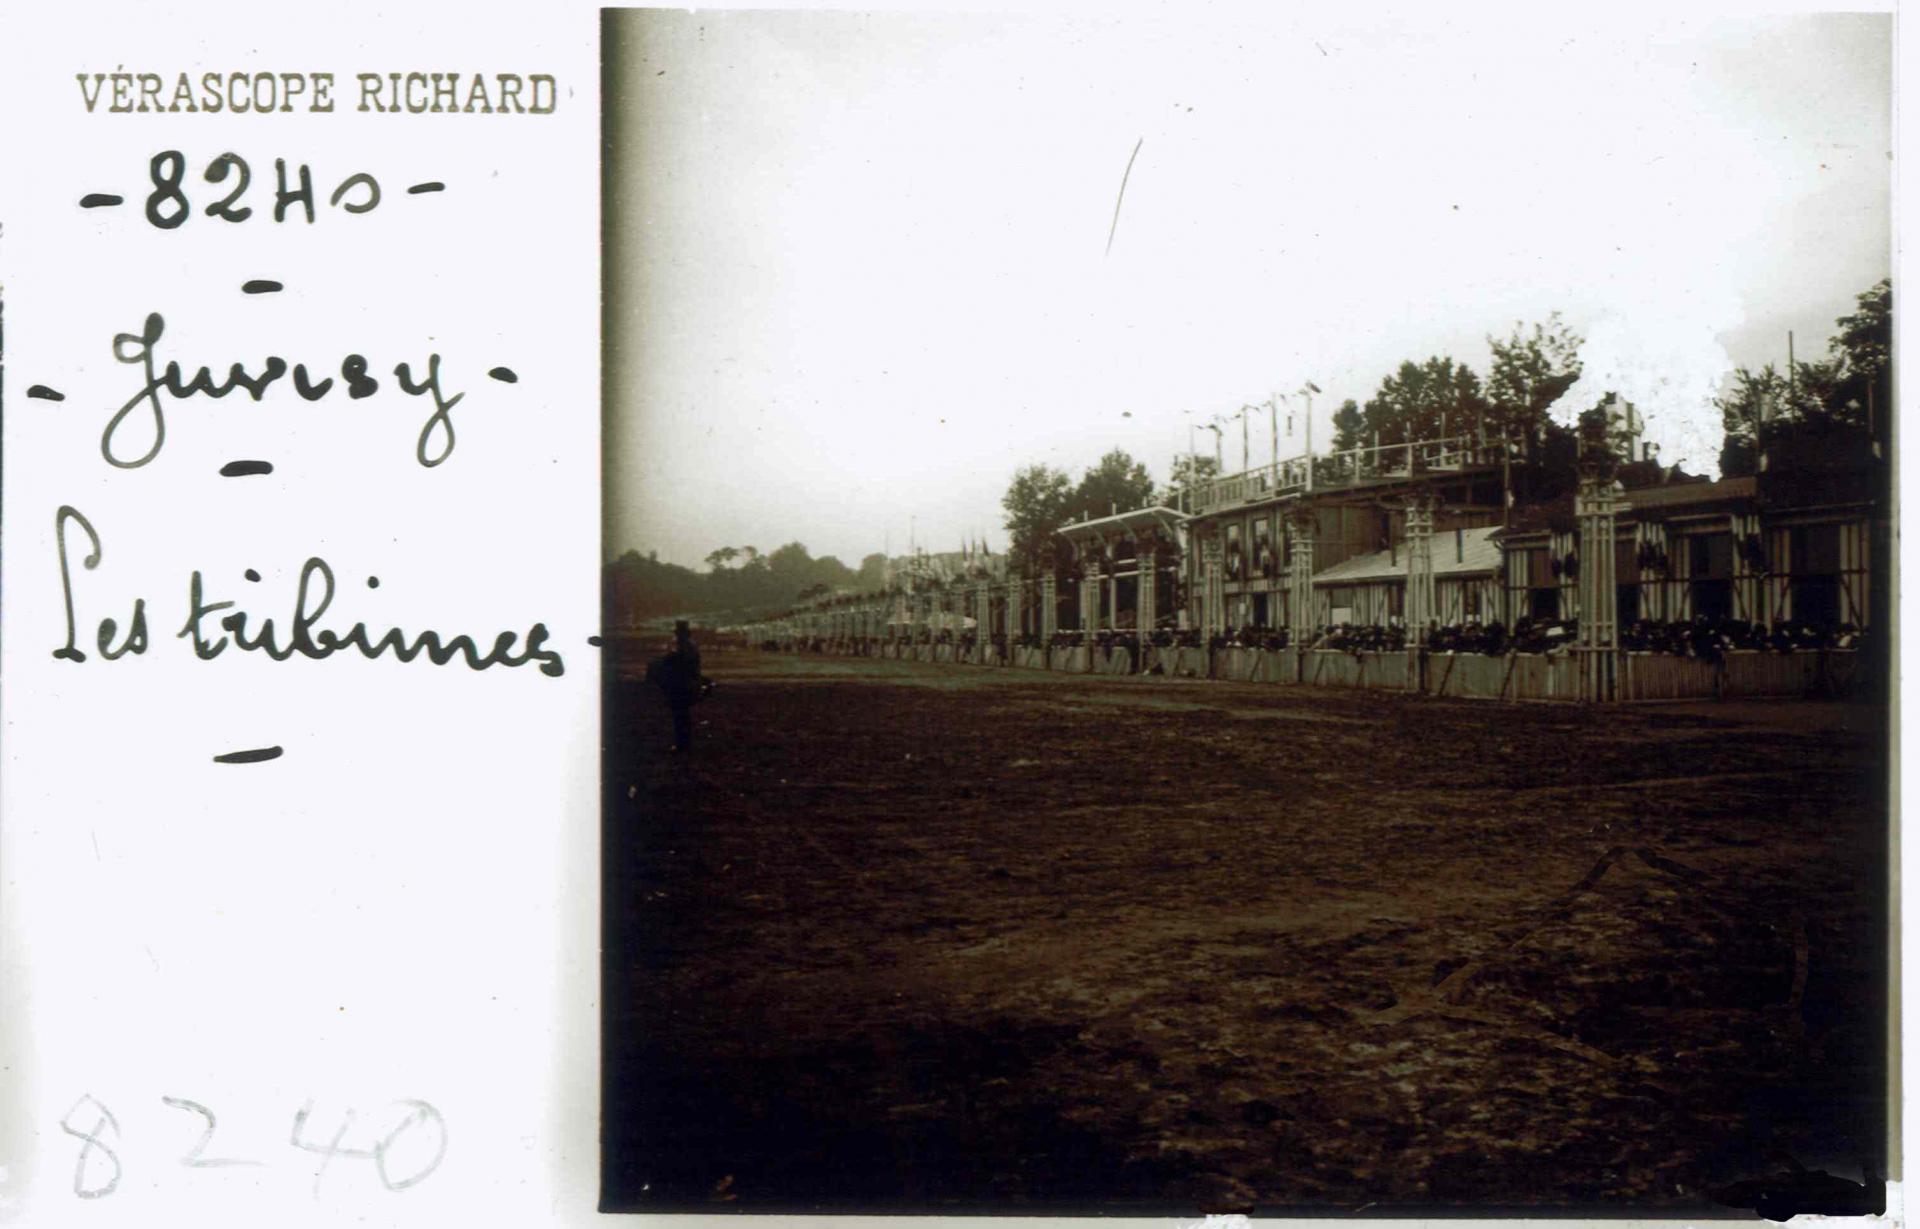 VÉRASCOPE RICHARD
- 8240 -
-
- Juvisy -
-
Les tribunes -
-
8240